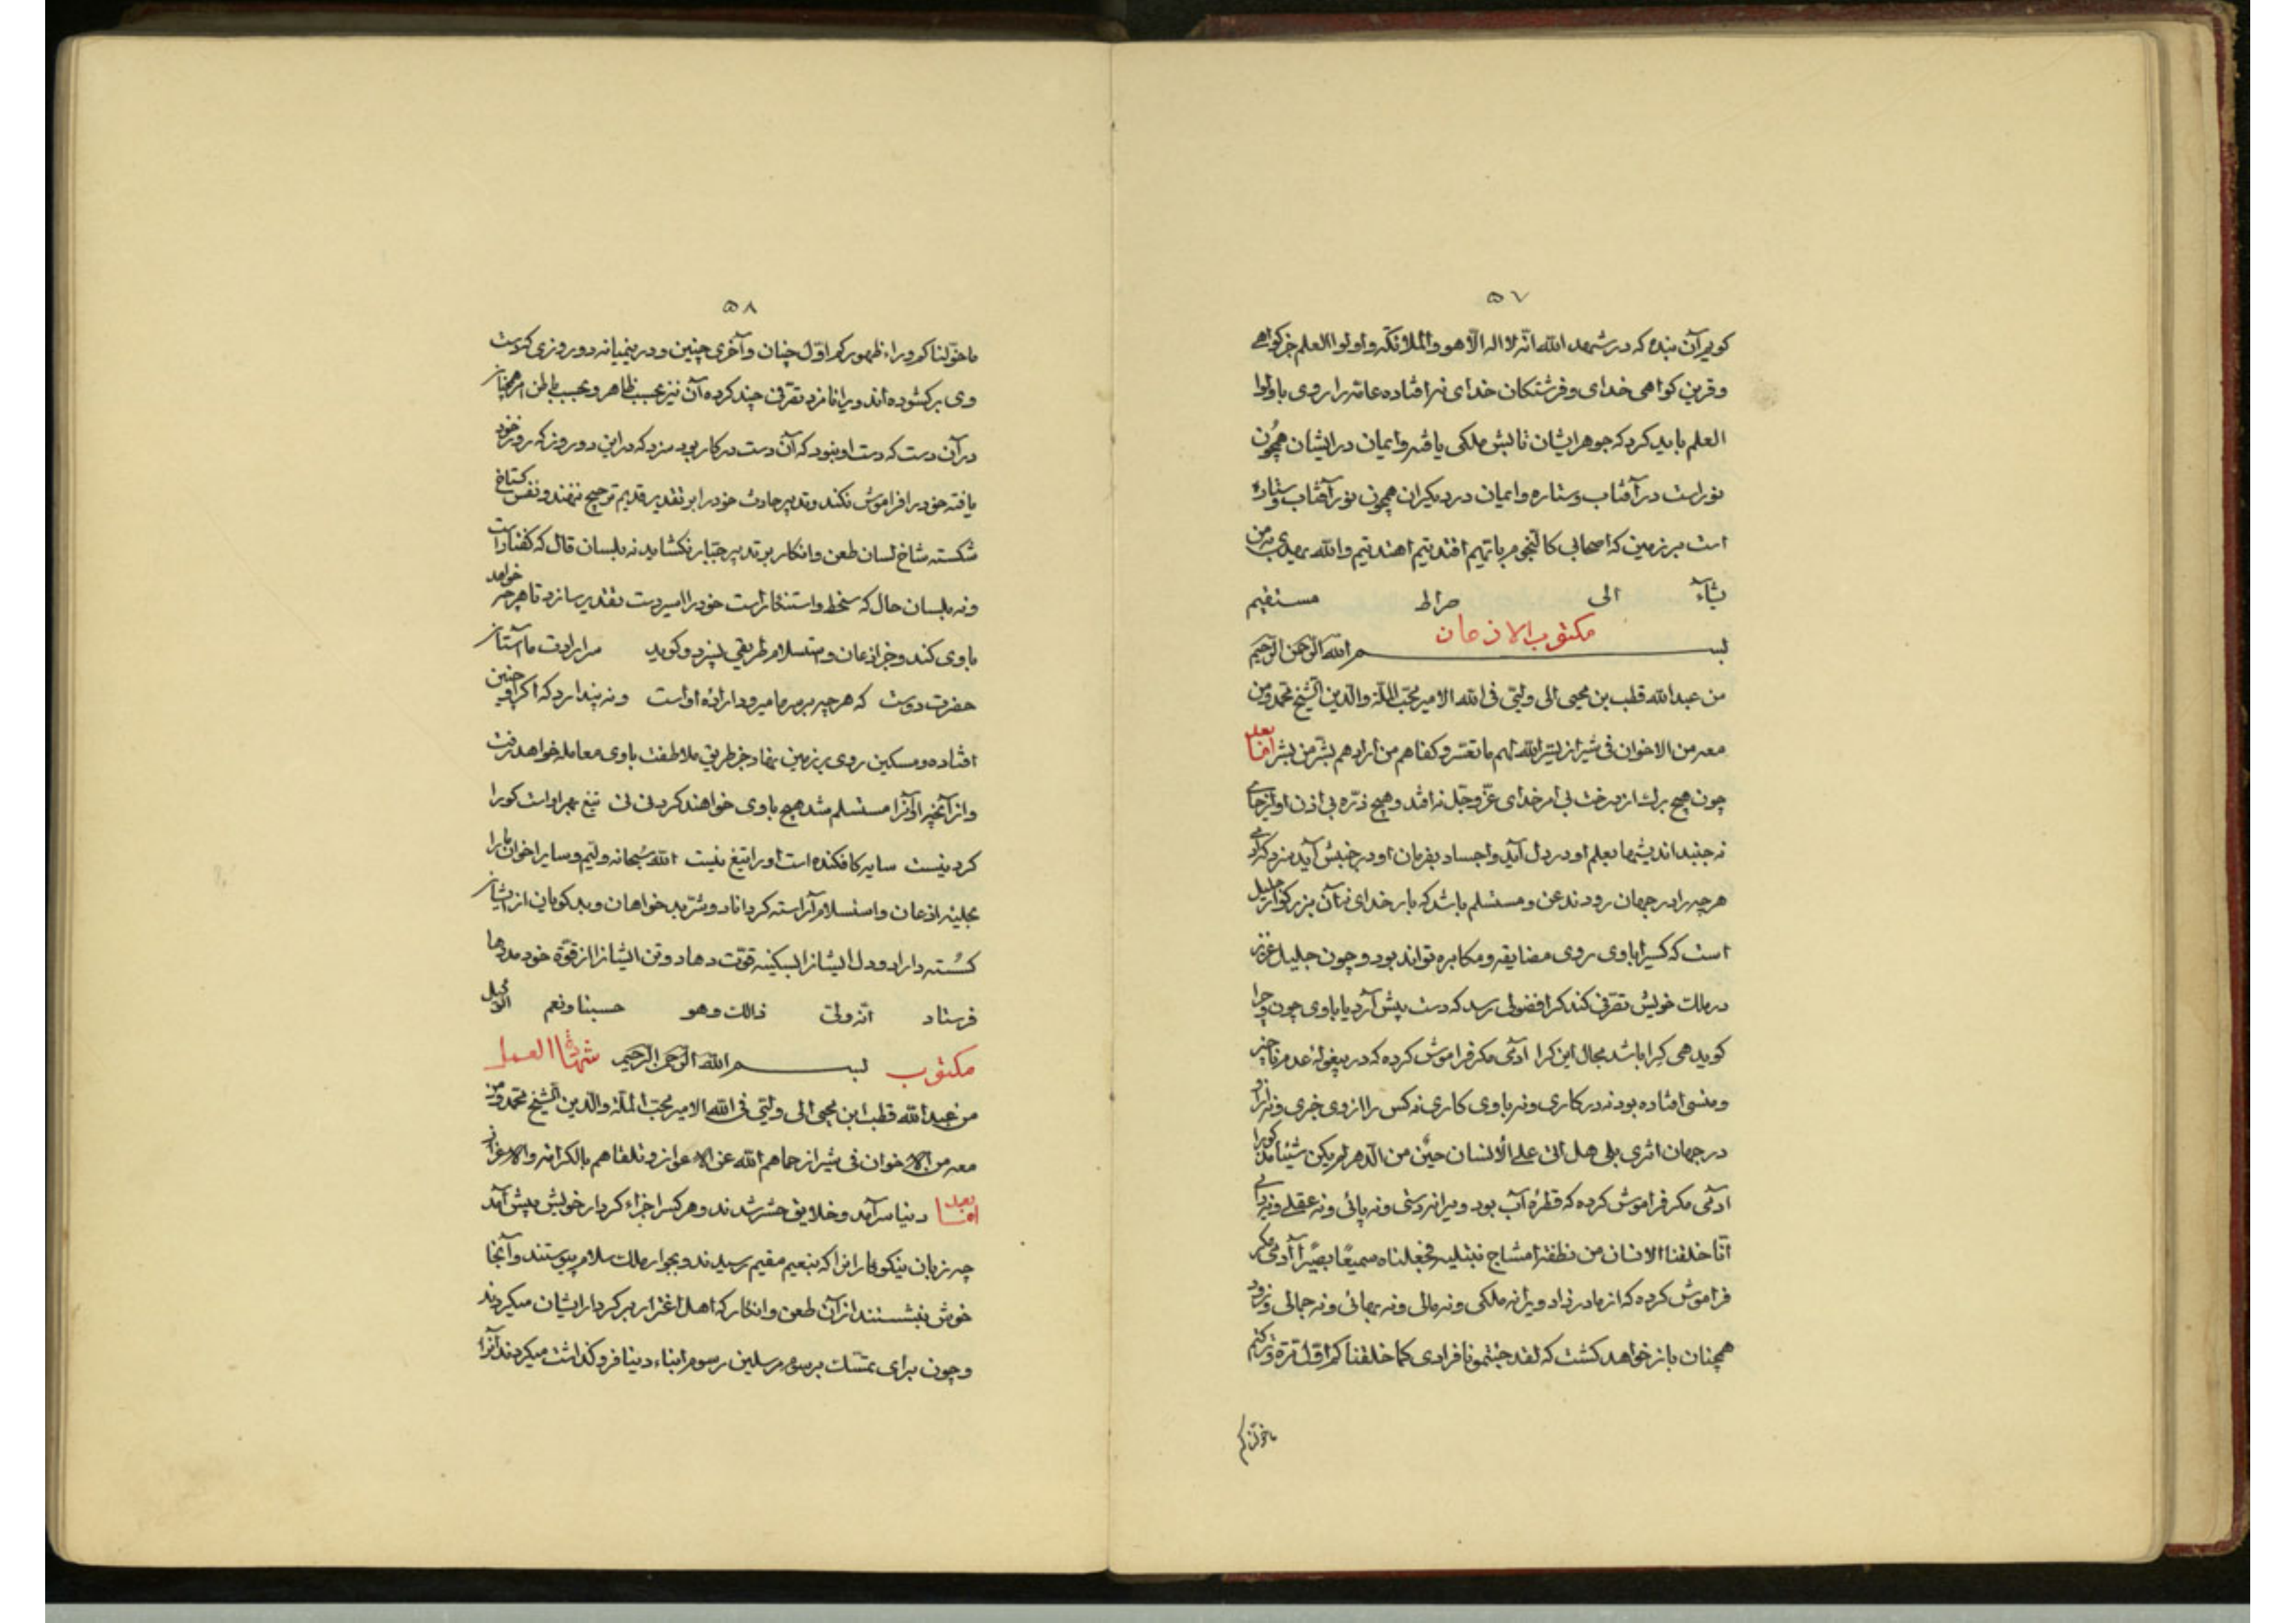 ۵۷
کویم آن بنده که در شهد الله انّه لا اله الّا هو والملائکه واولوا العلم جز کواهی
وقرین کواهی خدای وفرشتکان خدای نه افتاده عامّه را روی با اولوا
العلم باید کرد که جوهر ایشان تابش ملکی یافته وایمان در ایشان همچون
نور است در آفتاب وستاره وایمان در دیکران همچون نور آفتاب وستاره
است بر زمین که اصحابی کالنّجوم بایّهم اقتدیتم اهتدیتم والله یهدی من
یشآء الی صراط مستقیم
مکتوب الاذعان
بسم الله الرّحمن الرّحیم
من عبدالله قطب بن محیی الی ولیّی فی الله الامیر محبّ الملّة والدّین الشّیخ محمّد ومن
معه من الاخوان فی شیراز یسّر الله لهم ما تعسّر وکفاهم من ارادهم بشرّ من بشر امّا بعد
چون هیچ برک از درخت بی امر خدای عزّ وجلّ نه افتد وهیچ ذرّه بی اذن او از جای
نه جنبد اندیشها بعلم او در دل آید واجساد بفرمان او در جنبش آید مزد که آدمی
هرچه را در جهان رود مذعن ومستسلم باشد که بار خدای نه آن بزرکوار جلیل
است که کسی را با وی روی مضایقه ومکابره تواند بود وچون جلیل عزیز
در ملک خویش تصرّفی کند کرا فضولی رسد که دست پیش آرد یا با وی چون وچرا
کوید هی کرا باشد مجال این کرا آدمی مکر فراموش کرده که در بیغولهٔ عدم ناچیز
ومنسی افتاده بود نه در کاری ونه با وی کاری نه کس را از وی خبری ونه از او
در جهان اثری بلی هل اتی علی الانسان حین من الدّهر لم یکن شیئا مذکورا
آدمی مکر فراموش کرده که قطرهٔ آب بود ویرا نه دستی ونه پائی ونه عقلی ونه رایی
انّا خلقنا الانسان من نطفة امشاج نبتلیه فجعلناه سمیعًا بصیرًا آدمی مکر
فراموش کرده که از مادر زاد ویرا نه ملکی ونه مالی ونه بهائی ونه جمالی وزود
همچنان باز خواهد کشت که لقد جئتمونا فرادی کما خلقناکم اوّل مرّة وترکتم
ما خوّلناکم
۵۸
ما خوّلناکم وراء ظهورکم اوّل چنان وآخری چنین ودر ینمیانه دو روزی که دست
وی برکشوده اند ویرا نامزد تصرّفی چند کرده آن نیز بحسب ظاهر وبحسب باطن هم چنان
در آن دست که دست او نبود که آن دست در کار بود مزد که در این دو روز که روز خود
یافته خود را فراموش نکند وتدبیر حادث خود را بر تقدیر قدیم ترجیح ننهد ونفس کستاخ
شکسته شاخ لسان طعن وانکار بر تدبیر جبّار نکشاید نه بلسان قال که کفتار است
ونه بلسان حال که سخط واستنکار است خود را اسیر دست تقدیر سازد تا هرچه خواهد
با وی کند وجز اذعان واستسلام طریقی نسپرد وکوید مرا ارادت ما آستان
حضرت دوست که هرچه بر سر ما میرود ارادهٔ اوست ونه پندارد که اکر او چنین
افتاده ومسکین روی بر زمین نهاد جز طریق ملاطفت با وی معامله خواهد رفت
واز آنچه او آنرا مستسلم شد هیچ با وی خواهند کرد نی نی تیغ بهر اوست کو را
کردنیست سایه کافکنده است او را تیغ نیست الله سبحانه ولیّم وسایر اخوان ما را
بحلیهٔ اذعان واستسلام آراسته کرداناد وشرّ بدخواهان وبدکویان از ایشان
کسسته داراد ودل ایشانرا بسکینه قوّت دهاد وتن ایشانرا از قوّة خود مددها
فرستاد انّه ولیّ ذلک وهو حسبنا ونعم الوکیل
مکتوب بسم الله الرّحمن الرّحیم شهادة العمل
من عبدالله قطب ابن محیی الی ولیّی فی الله الامیر محبّ الملّة والدّین الشّیخ محمّد ومن
معه من الاخوان فی شیراز حماهم الله عن الاعواز وتلقاهم بالکرامة والاعزاز
امّا بعد دنیا سرآمد وخلایق حشر شدند وهر کسرا جزاء کردار خویش پیش آمد
چه زیان نیکوکارانرا که بنعیم مقیم رسیدند وبجوار ملک سلام پیوستند وآنجا
خوش بنشستند از آن طعن وانکار که اهل اغترار بر کردار ایشان میکردند
وچون برای تمسّک برسوم مرسلین رسوم ابناء دنیا فرو کذاشت میکردند آنرا